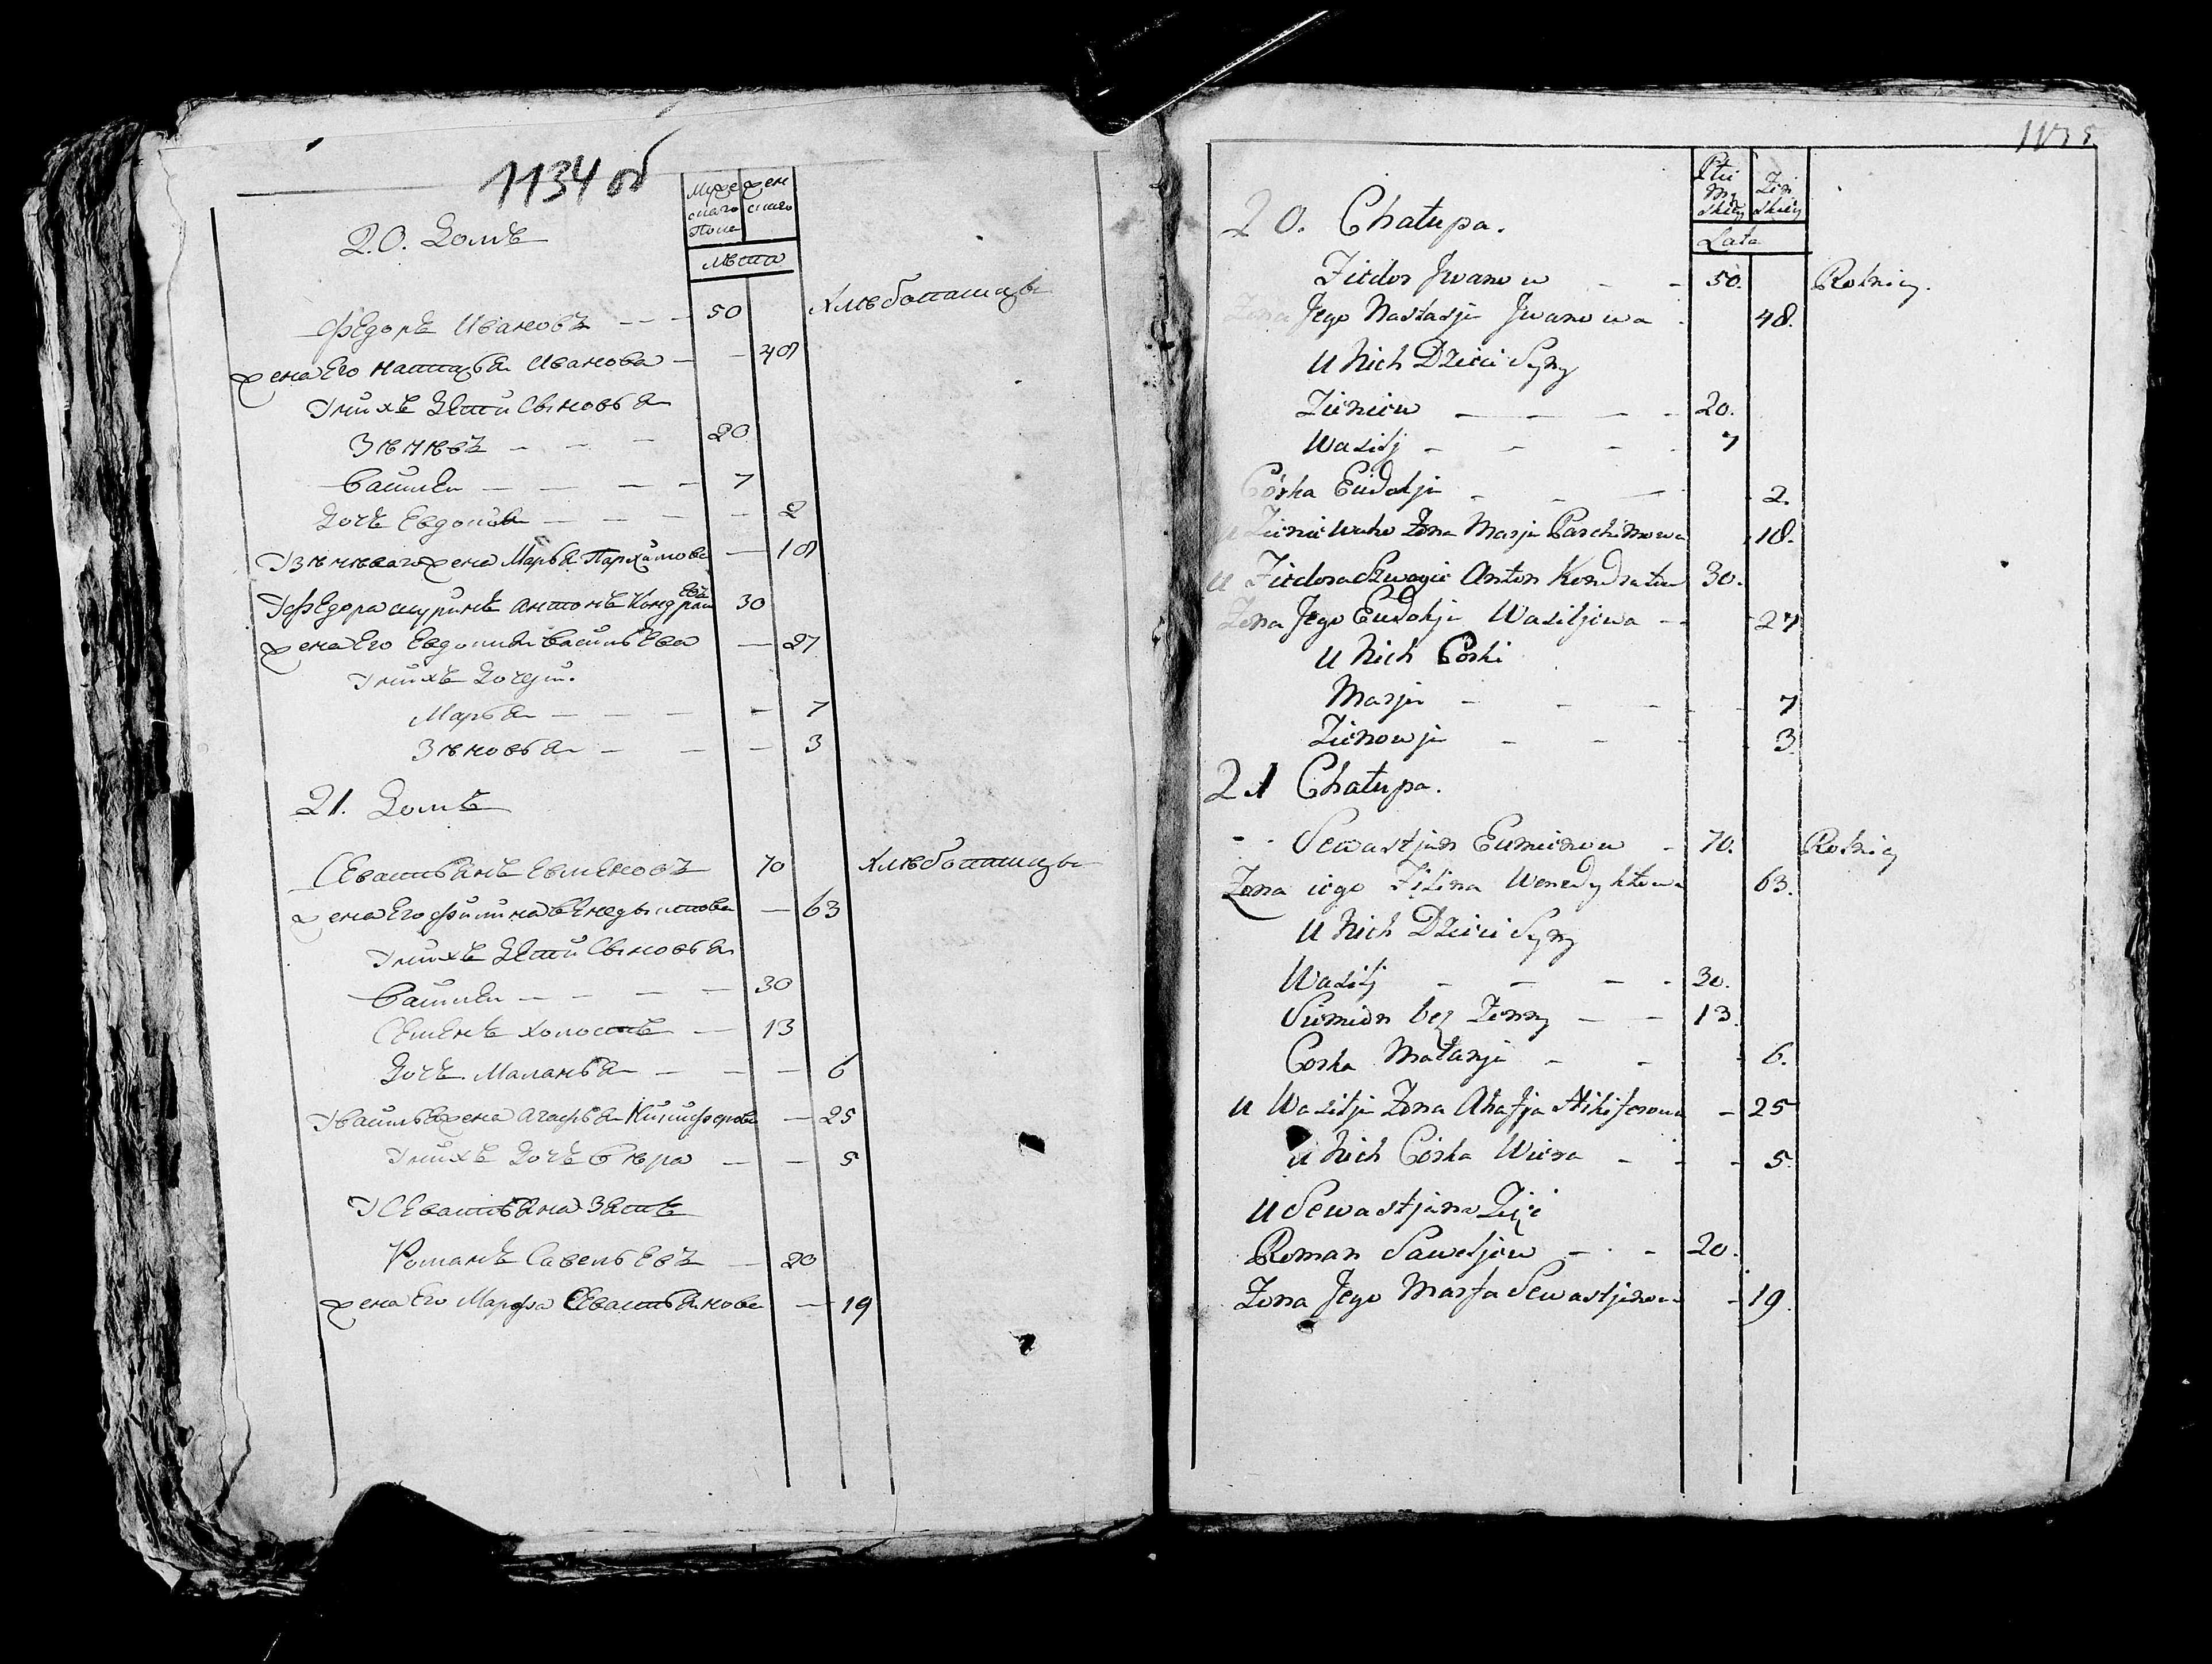 1134 об
Муже
скаго
Полу
жен
скаго
Лѣта
20. Домъ
Федоръ Ивановъ — — 50 Хлѣбопашцы
жена Его Настасья Иванова — — 48
У нихъ Дети Сыновья
Зѣнѣвъ — — — 20
Василеи — — — — 7
Дочь Евдокия — — — — 2
У Зѣнѣваго жена Марья Пархимова — 18
У Федора шуринъ Антонъ Кондратевъ 30
жена Его Евдокия Васильева — 27
У нихъ Дочери.
Марья — — — — 7
Зѣновья — — — 3
21. Домъ
Севастьянъ Евменовъ 70 Хлѣбопашцы
жена Его Филина Венедыктова — 63
У нихъ Дети Сыновья
Василеи — — — — 30
Семенъ холостъ — 13
Дочь Маланья — — — 6
У Василья жена Агафья Никифорова — 25
У нихъ Дочь Вѣра — — 5
У Севастьяна Зять
Романъ Савельевъ — 20
жена Его Марфа Севастьянова — 19
1135
Płci
Mę
skiey
Żeń
skiey
Lata
20. Chałupa.
Fiedor Jwanow - - 50. Rolnicy.
Żona Jego Nastasja Jwanowa - 48.
U Nich Dzieci Syny
Zieniew — — — - 20.
Wasilj - - - - 7
Córka Eudokja - - — - 2.
u Zieniewaho Żona Marja Parchimowa - 18.
u Fiedora Szwagier Anton Kondratiew 30.
Żona Jego Eudokja Wasiljewa - - - 27
U Nich Corki
Marja - - - - - 7
Zienowja - - - - 3.
21 Chałupa.
- - Sewastjan Eumienow - 70. Rolnicy
Żona iego Filina Wenedyktowa 63.
U Nich Dzieci Syny
Wasilj - — - - 30.
Siemion bez Żenny — - 13.
Corka Małanja - - - 6.
u Wasilja Żona Ahafja Nikiforowa - 25
u Nich Córka Wiera - - - - 5.
u Sewastjana Zięć
Roman Saweljew - - - 20.
Żona Jego Marfa Sewastjanowa - 19.